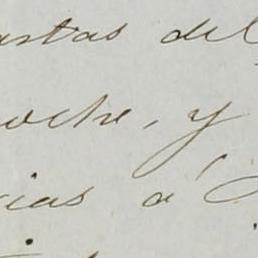 astas del
oche, y
cias á